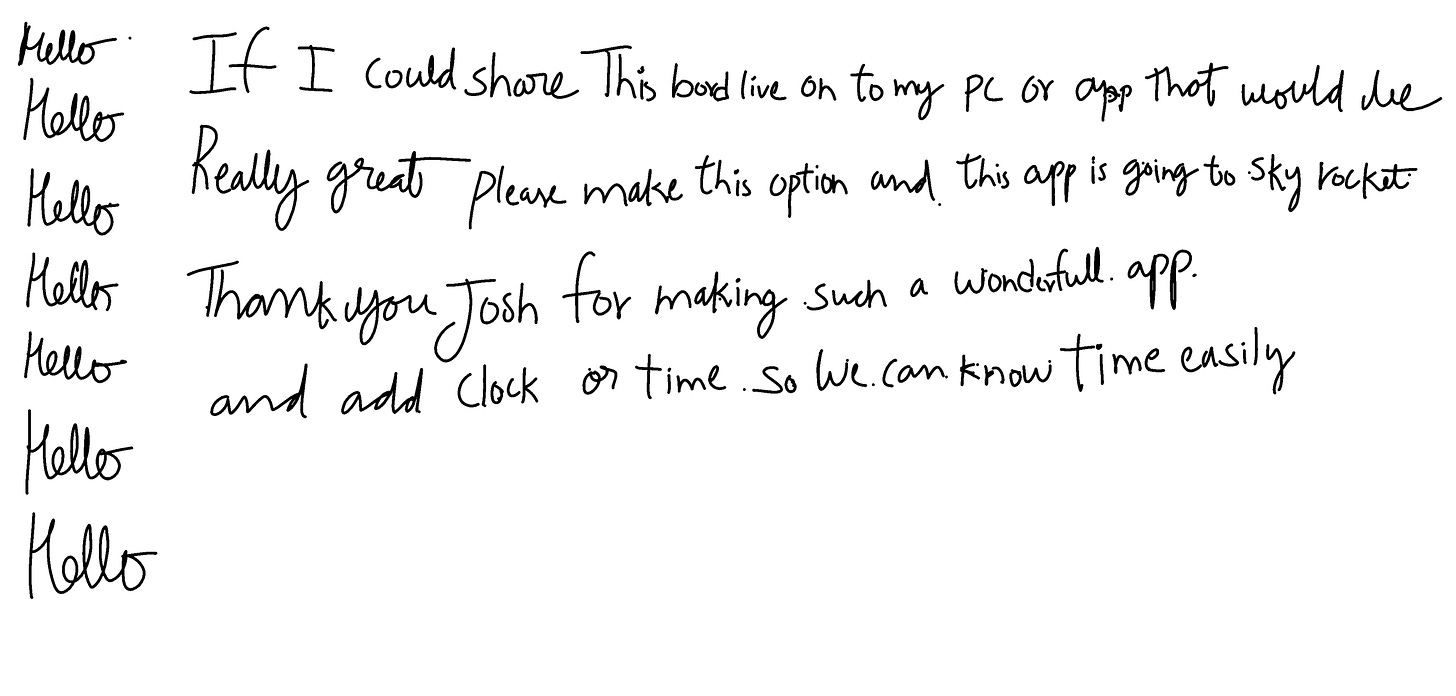 Hello
Hello
Hello
Hello
Hello
Hello
Hello
If I could share This bord live on to my PC or app That would be
Really great please make this option and this app is going to sky rocket
Thank you Josh for making such a wonderfull app.
and add Clock or time so We can know Time easily